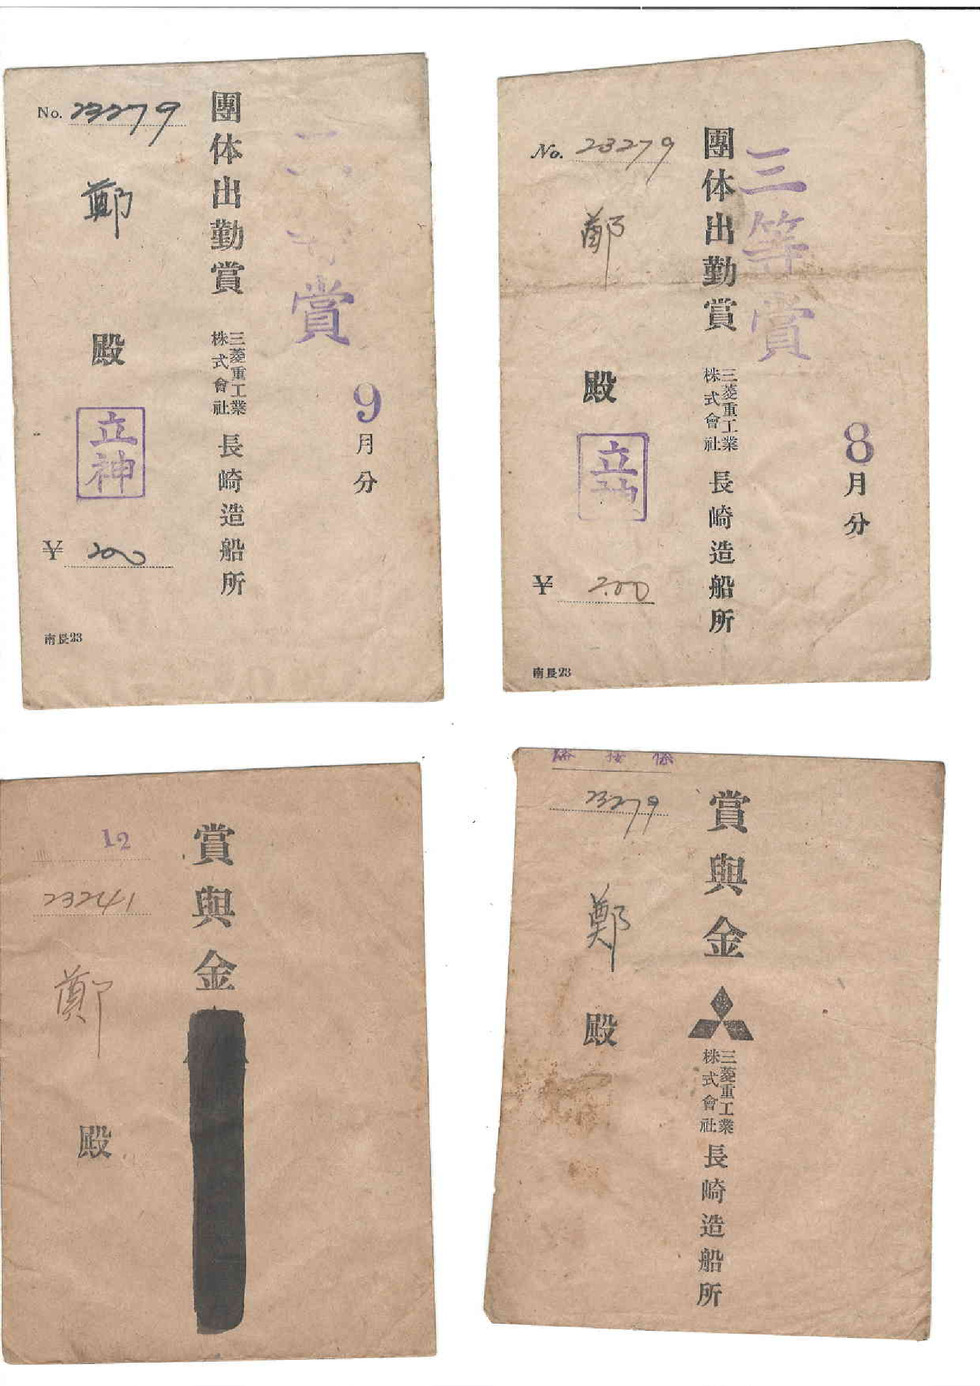 No. 23279
團体出勤賞
賞
三菱重工業
株式會社
長崎造船所
9月分
鄭
殿
立神
¥ 200
南長23
No. 23279
團体出勤賞
三等賞
三菱重工業
株式會社
長崎造船所
8月分
鄭
殿
立神
¥ 2.00
南長23
12
23241
賞與金
鄭
殿
23279
賞與金
三菱重工業
株式會社
長崎造船所
鄭
殿